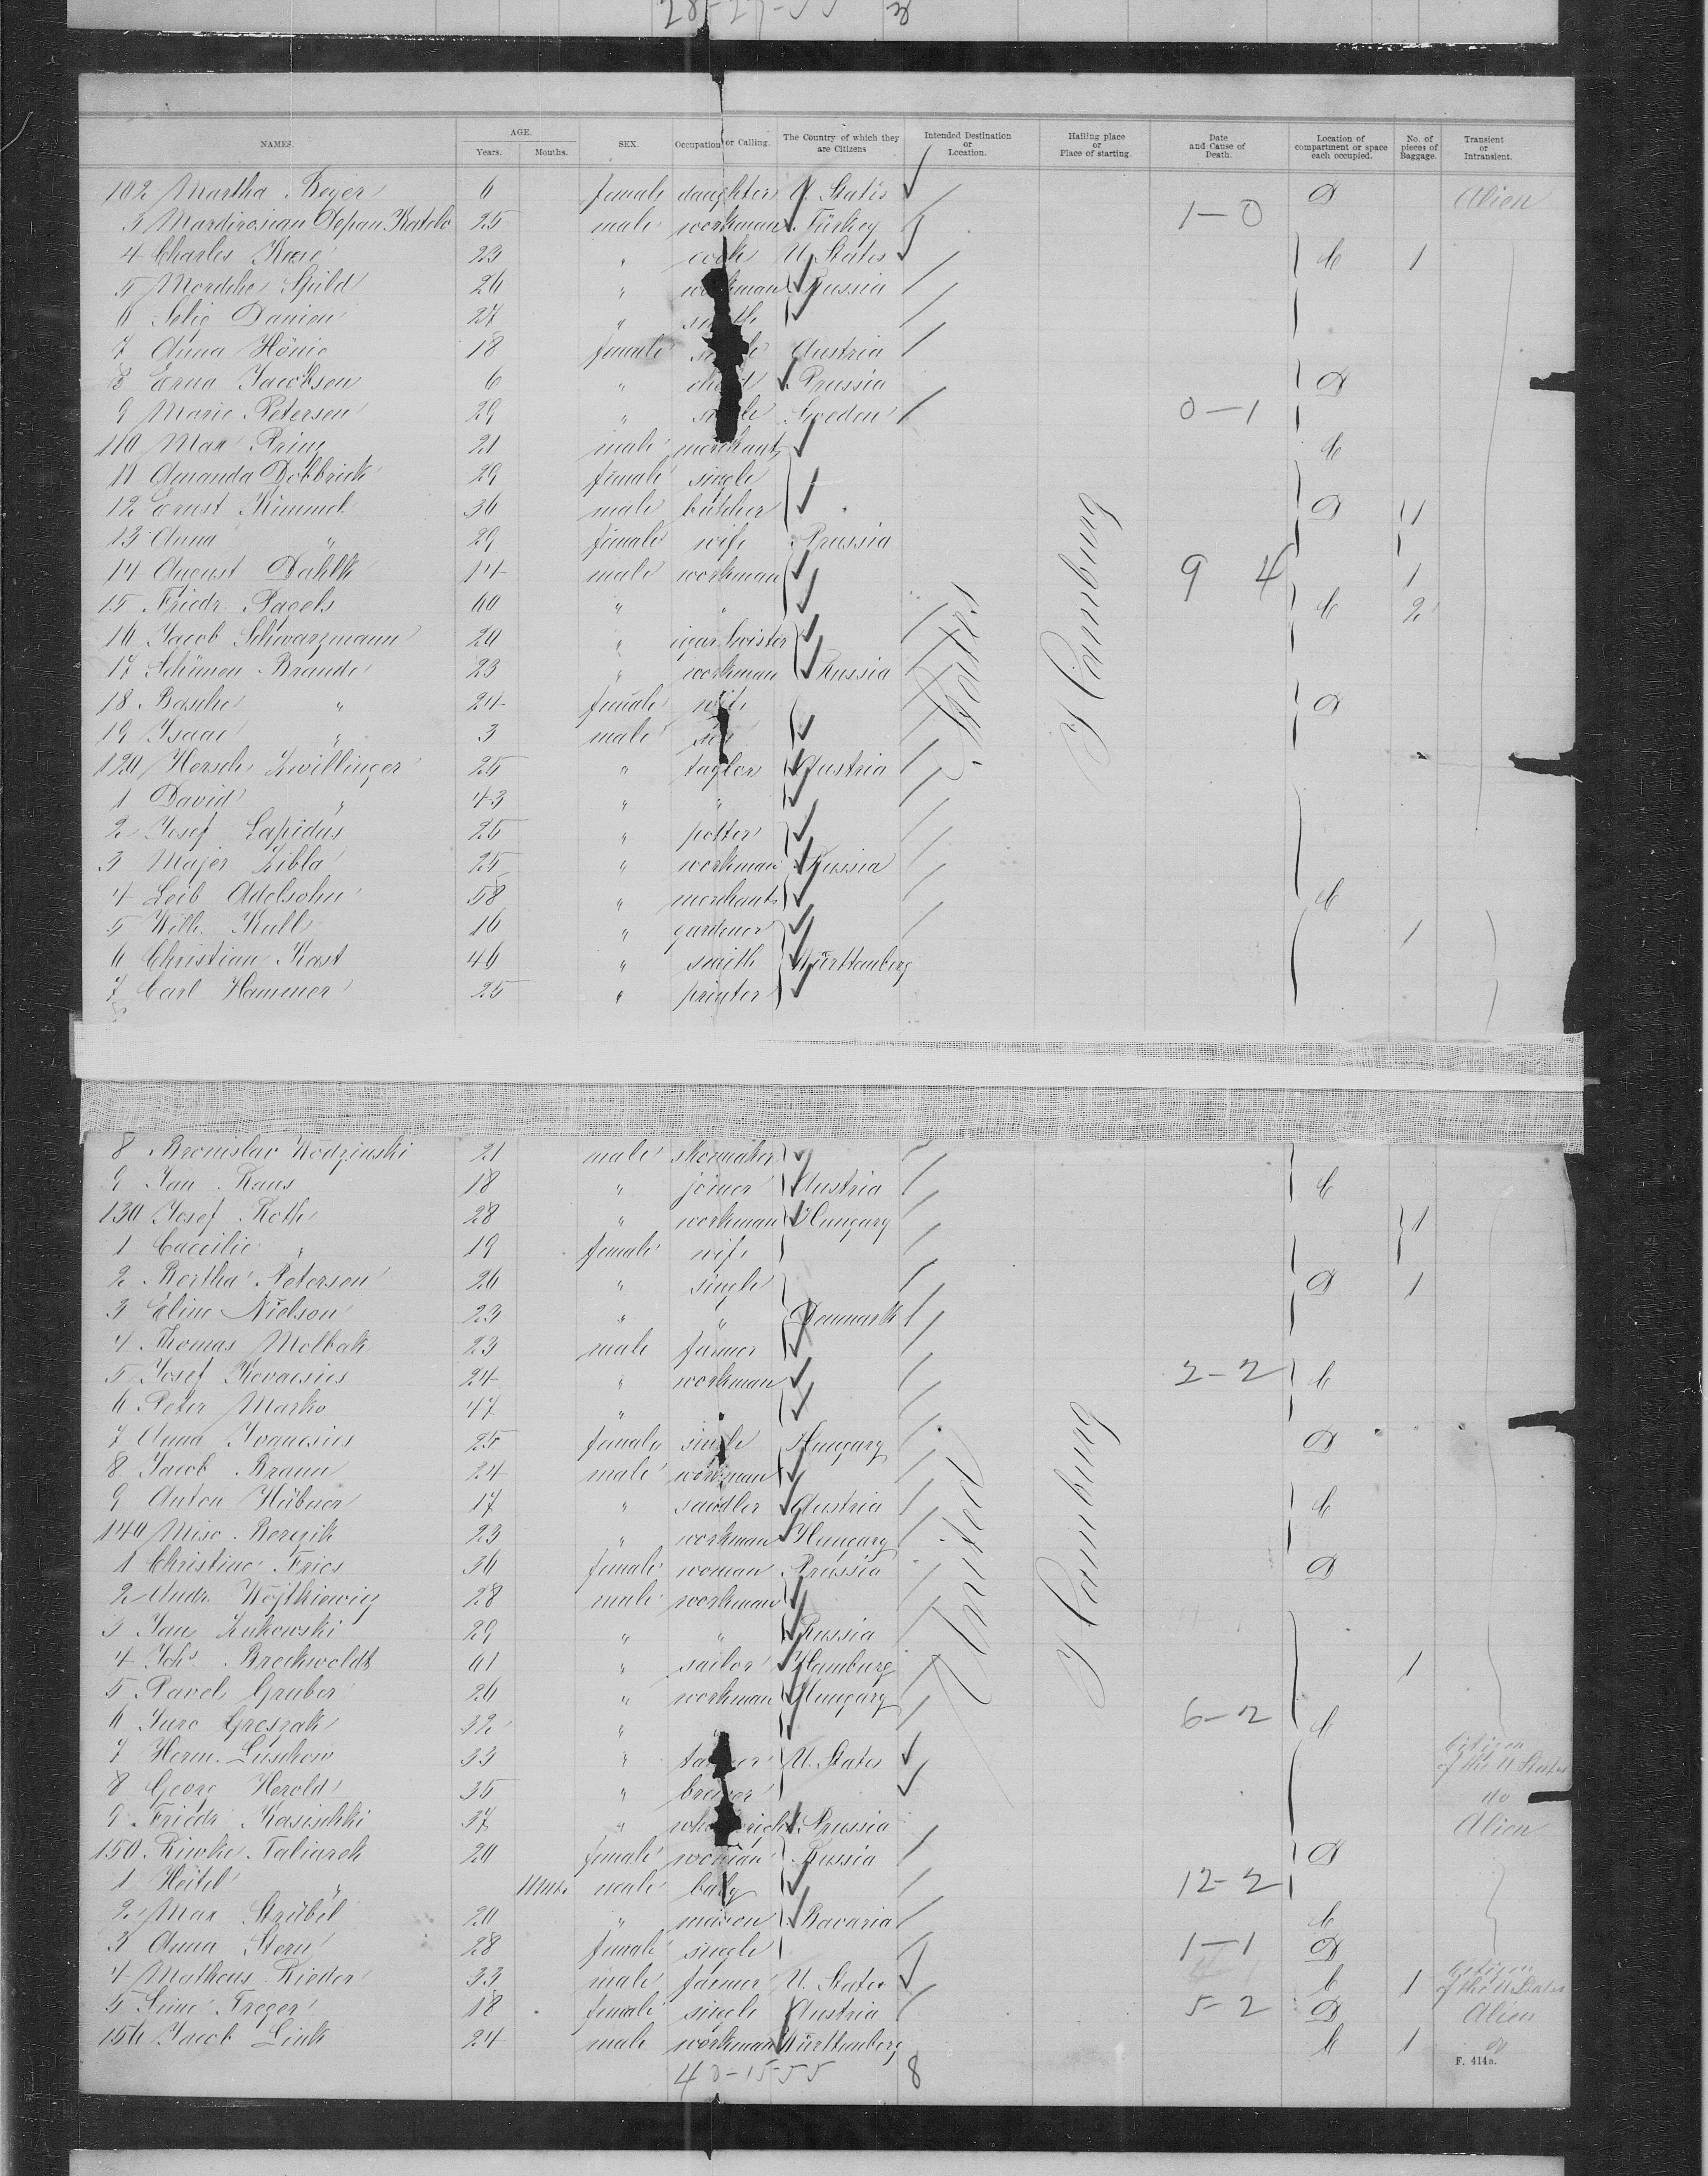 28-27-55 8
NAMES. AGE. Years. Months. SEX. Occupation or Calling. The Country of which they are Citizens Intended Destination or Location. Hailing place or Place of starting. Date and Cause of Death. Location of compartment or space each occupied. No. of pieces of Baggage. Transient or Intransient.
102 Martha Beyer 6 female daughter U. States Alien
3 Mardirosian 25 male workman Turkey 1-0
4 Charles 23 " cook U. States 1
5 26 " workman Russia
6 Selig 27 "
7 Anna Hönig 18 female Austria
8 Erna Jacobson 6 " child Prussia
9 Marie Petersen 29 " single Sweden 0-1
110 Max Prinz 21 male merchant
11 Amanda Dobbrick 29 female single
12 Ernst Kimmel 36 male butcher
13 Anna " 29 female wife Prussia
14 August Dahlk 14 male workman 9 4 1
15 Friedr. Pagels 60 " " 2
16 Jacob Schwarzmann 20 "
17 Brande 23 " workman Russia
18 Basche " 24 female wife
19 Isaac " 3 male son
120 Hersch Zwillinger 25 " taylor Austria
1 David " 43 " "
2 Josef Lapidus 25 " potter
3 Majer Zibla 25 " workman Russia
4 Leib Adelsohn 58 " merchant
5 Wilh. Kull 16 " gardener 1
6 Christian Kast 46 " smith Württemberg
7 Carl Hammer 25 " printer
States
Hamburg
8 Bronislav 21 male shomaker
9 Jan Raus 18 " joiner Austria
130 Josef Roth 28 " workman Hungary 1
1 Caecilie " 19 female wife
2 Bertha Peterson 26 " single 1
3 Eline Nielson 23 " " Denmark
4 Thomas Molbak 23 male farmer
5 Josef 24 " workman 2-2
6 Peter Marko 47 " "
7 Anna 25 female single Hungary
8 Jacob Braun 24 male workman
9 Anton Hübner 17 " saddler Austria
140 23 " workman Hungary
1 Christine Fries 36 female woman Prussia
2 Andr. Wojtkiewicz 28 male workman
3 Jan Zukowski 29 " " Russia
4 Johs. Breckwoldt 61 " sailor Hamburg 1
5 Pavel Gruber 26 " workman Hungary
6 Juro Greszak 32 " " 6-2
7 Herm. Luschow 33 " U. States citizen of the U States
8 Georg Herold 35 " brewer do
9 Friedr. Kasischki 37 " Prussia Alien
150 Riwke Taliarek 20 female woman Russia
1 Heitel " male baby 12-2
2 Max Strübel 20 " mason Bavaria
3 Anna Stern 28 female single 1-1
4 Matheus Rieder 33 male farmer U. States 1 citizen of the U States
5 Treger 18 female single Austria 5-2 Alien
156 Jacob Link 24 male workman Württemberg 1
United
Hamburg
40-15-55 8
F. 414a.